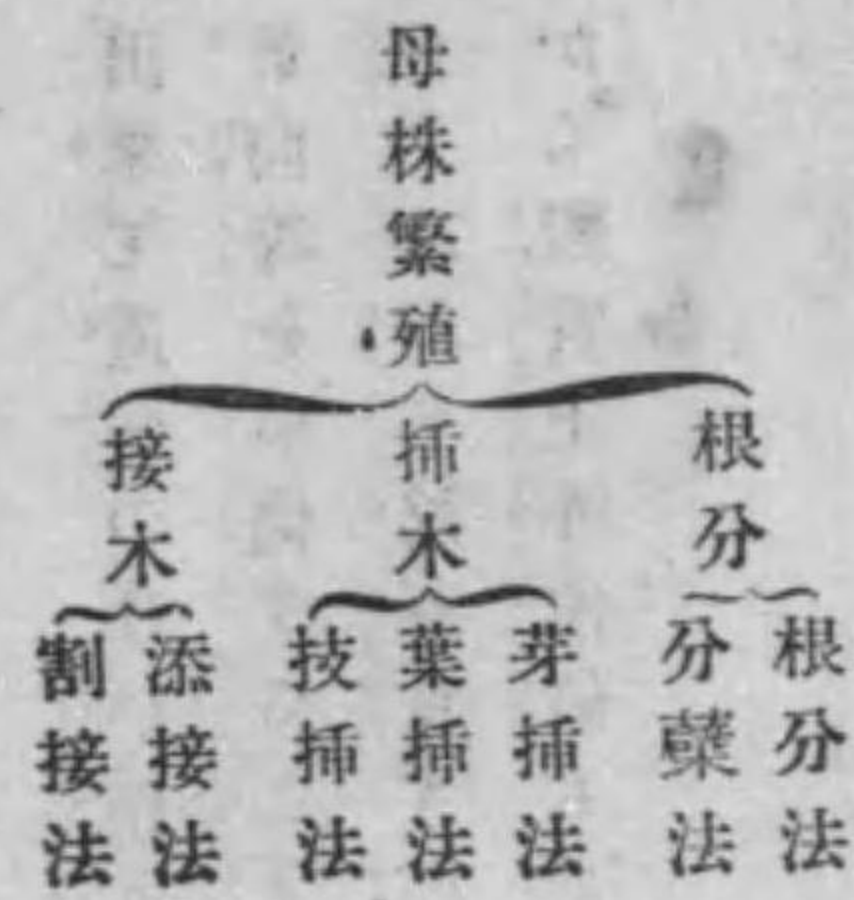 母株繁殖
根分
根分法
分蘖法
挿木
芽挿法
葉挿法
技挿法
接木
添接法
割接法